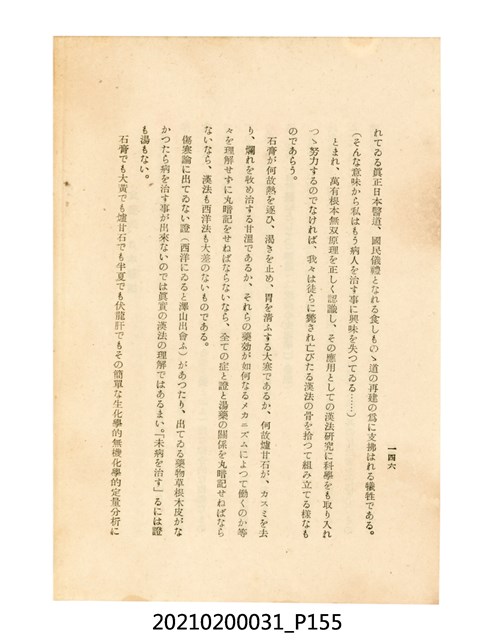 一四六
れてゐる眞正日本醫道、國民儀禮となれる食しものゝ道の再建の爲に支拂はれる犧牲である。
(そんな意味から私はもう病人を治す事に興味を失つてゐる……)
とまれ、萬有根本無双原理を正しく認識し、その應用としての漢法硏究に科學をも取り入れ
つゝ努力するのでなければ、我々は徒らに斃され亡びたる漢法の骨を拾つて組み立てる樣なも
のであらう。
石膏が何故熱を逐ひ、渇きを止め、胃を淸ふする大寒であるか、何故爐甘石が、カスミを去
り、爛れを收め治する甘溫であるか、それらの藥効が如何なるメカニズムによつて働くのか等
々を理解せずに丸暗記をせねばならないなら、全ての症と證と湯藥の關係を丸暗記せねばなら
ないなら、漢法も西洋法も大差のないものである。
傷寒論に出てゐない證(西洋にゐると澤山出會ふ)があつたり、出てゐる藥物草根木皮がな
かつたら病を治す事が出來ないのでは眞實の漢法の理解ではあるまい。「未病を治す」るには證
も湯もない。
石膏でも大黃でも爐甘石でも半夏でも伏龍肝でもその簡單な生化學的無機化學的定量分析に
20210200031_P155